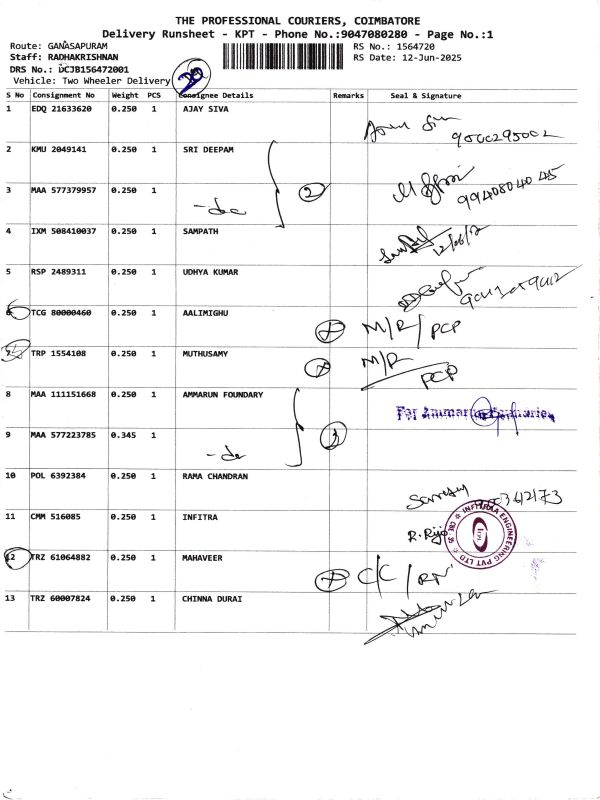 THE PROFESSIONAL COURIERS, COIMBATORE
Delivery Runsheet - KPT - Phone No.:9047080280 - Page No.:1
Route: GANASAPURAM RS No.: 1564720
Staff: RADHAKRISHNAN RS Date: 12-Jun-2025
DRS No.: DCJB156472001
Vehicle: Two Wheeler Delivery
S No Consignment No Weight PCS Consignee Details Remarks Seal & Signature
1 EDQ 21633620 0.250 1 AJAY SIVA
2 KMU 2049141 0.250 1 SRI DEEPAM
3 MAA 577379957 0.250 1 -do 2 9940804045
4 IXM 508410037 0.250 1 SAMPATH
5 RSP 2489311 0.250 1 UDHYA KUMAR
6 TCG 80000460 0.250 1 AALIMIGHU M/R/PCP
7 TRP 1554108 0.250 1 MUTHUSAMY M/R
PCP
8 MAA 111151668 0.250 1 AMMARUN FOUNDARY For Ammarun
9 MAA 577223785 0.345 1 -do
10 POL 6392384 0.250 1 RAMA CHANDRAN
11 CMM 516085 0.250 1 INFITRA R. Rijo INFITRAA ENGINEERING PVT LTD
12 TRZ 61064882 0.250 1 MAHAVEER C/C/RN
13 TRZ 60007824 0.250 1 CHINNA DURAI